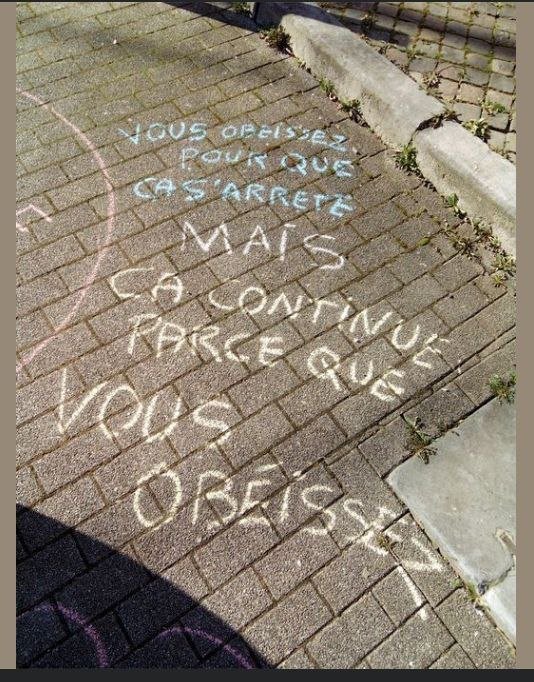 VOUS OBEISSEZ
POUR QUE
CA S'ARRETE
MAIS
CA CONTINUE
PARCE QUE
VOUS
OBÉISSEZ